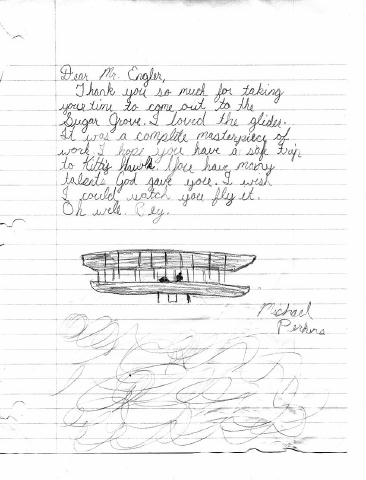 Dear Mr. Engler,
Thank you so much for taking
your time to come out to the
Sugar Grove. I loved the glider.
It was a complete masterpiece of
work. I hope you have a safe trip
to Kitty Hawk. You have many
talents God gave you. I wish
I could watch you fly it.
Oh well. Bey.
Michael
Perkins